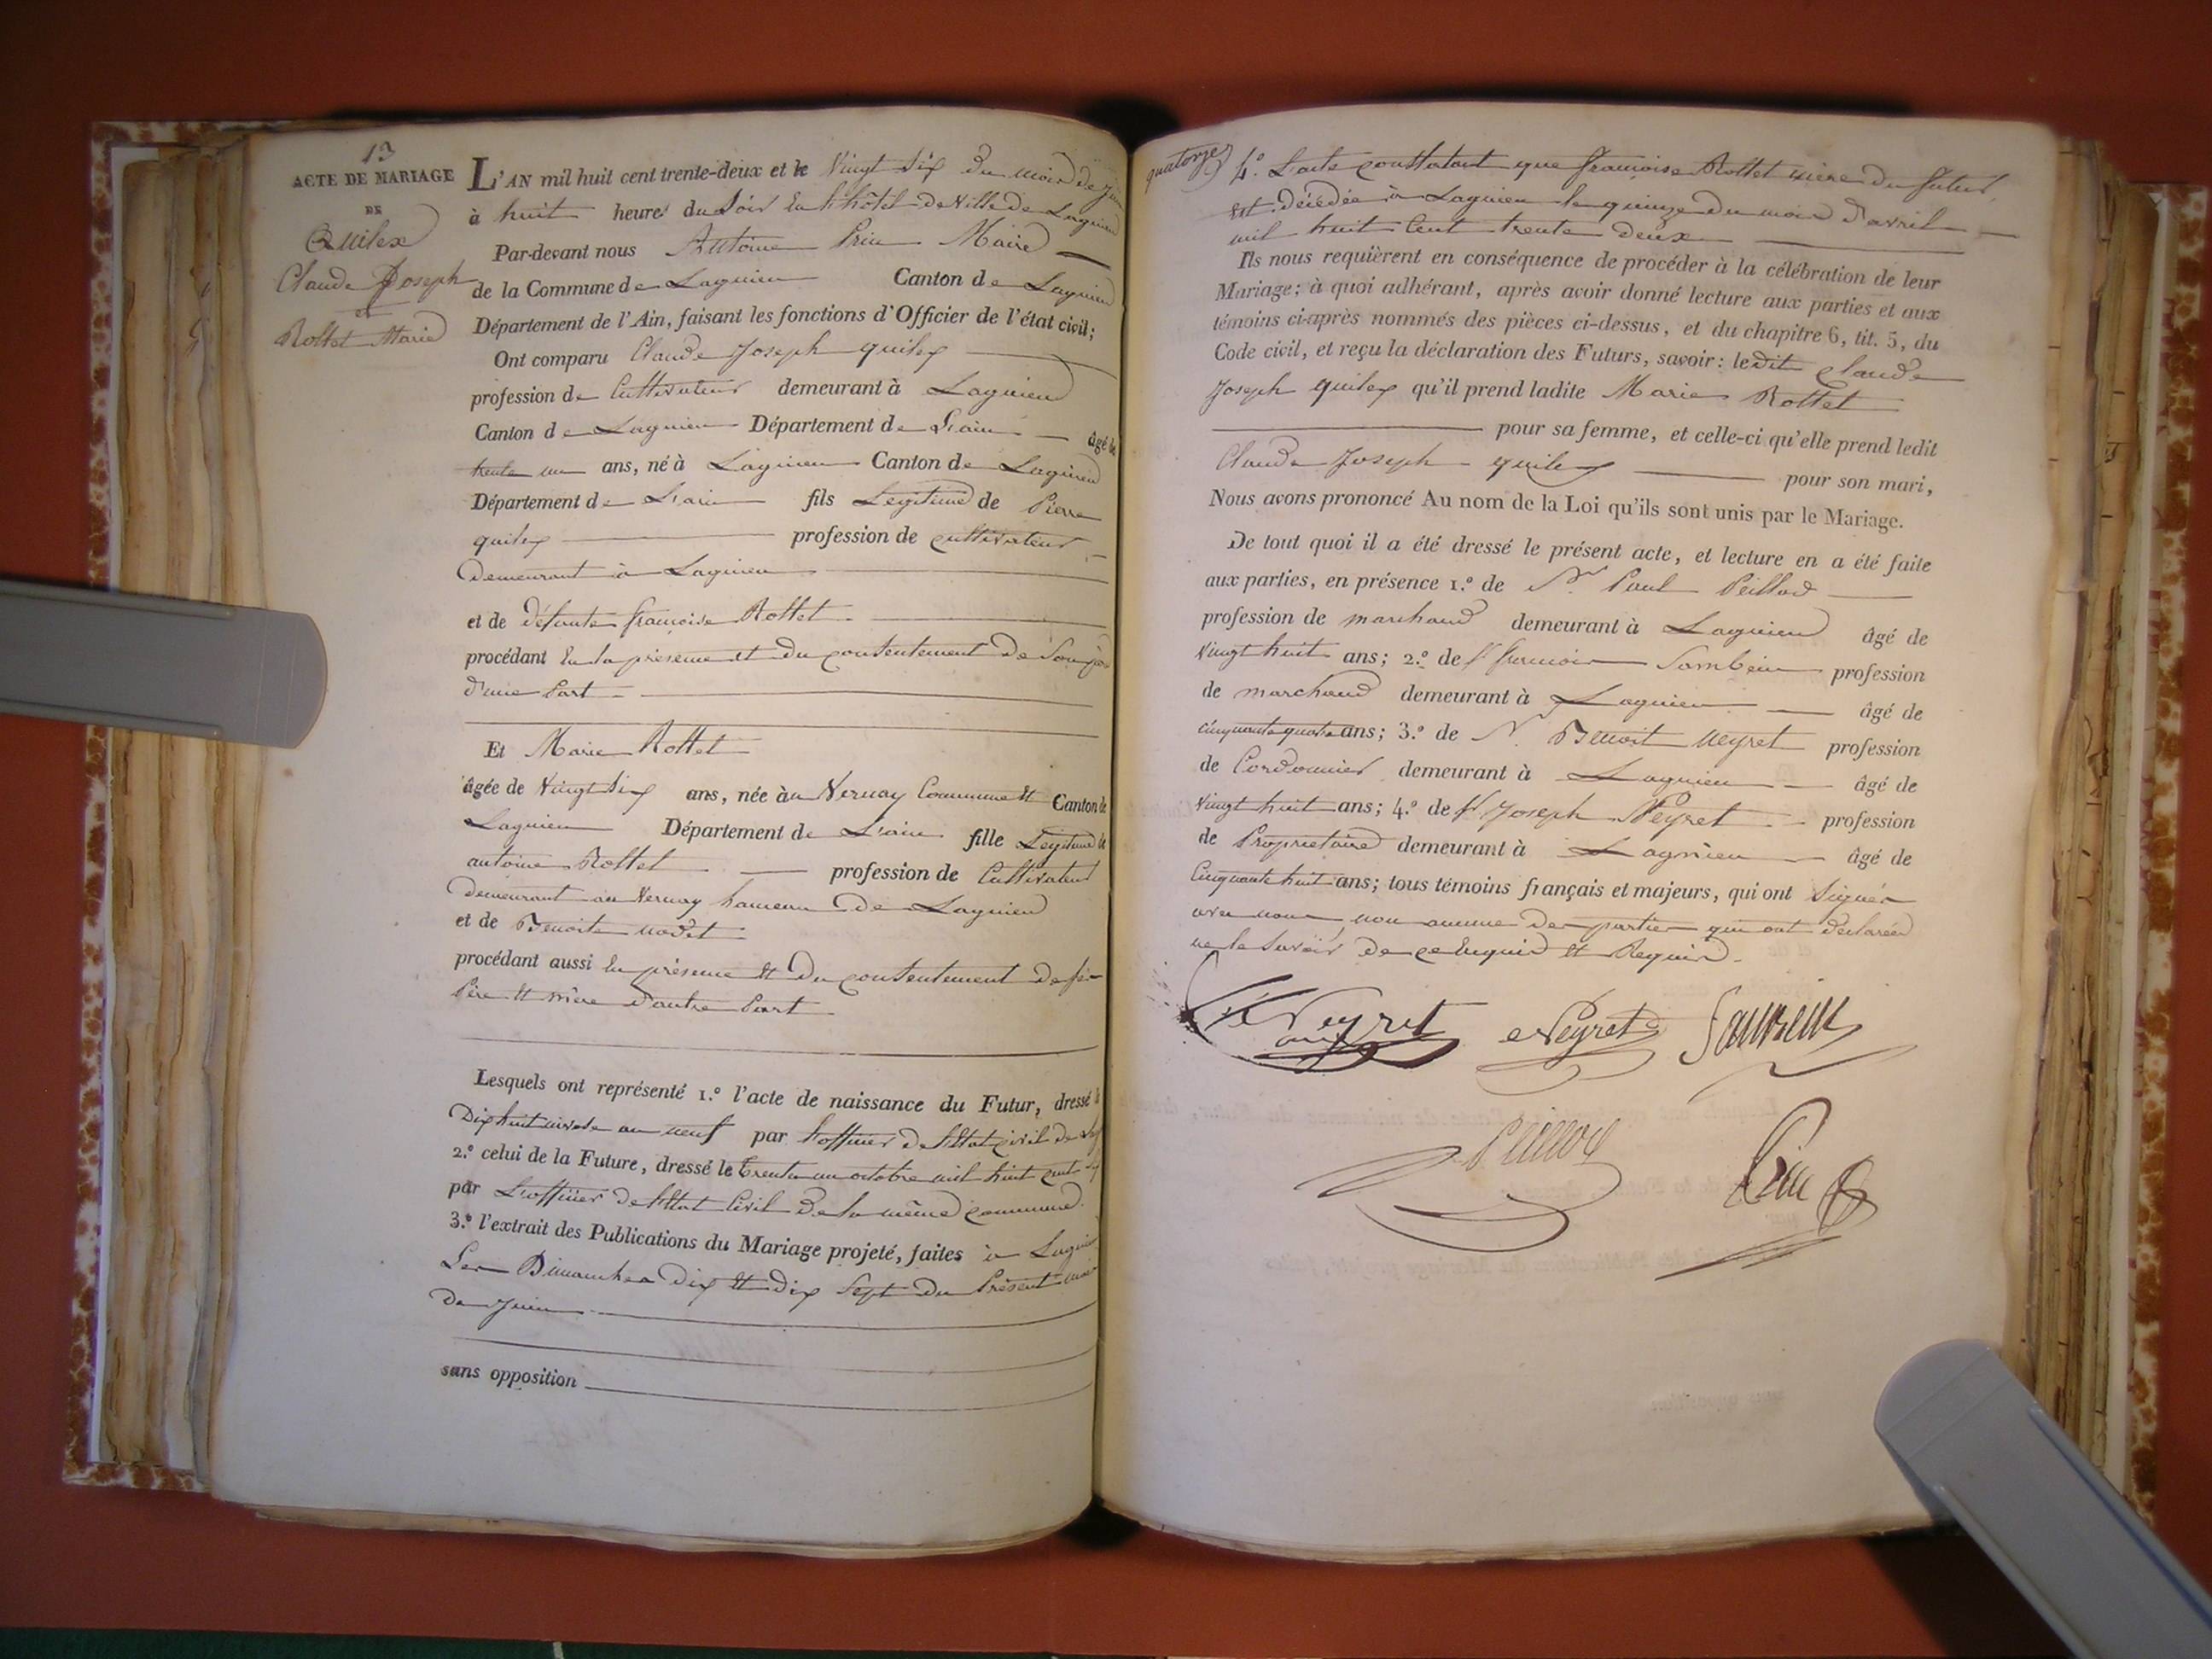 13
ACTE DE MARIAGE
DE
Quilex
Claude Joseph
et
Rollet Marie
L'AN mil huit cent trente-deux et le Vingt six du mois de Juin
à huit heures du Soir En l'hôtel de Ville de Lagnieu
Par-devant nous Antoine Prin Maire
de la Commune de Lagnieu Canton de Lagnieu
Département de l'Ain, faisant les fonctions d'Officier de l'état civil;
Ont comparu Claude Joseph quilex
profession de Cultivateur demeurant à Lagnieu
Canton de Lagnieu Département de L'ain âgé de
trente un ans, né à Lagnieu Canton de Lagnieu
Département de L'ain fils Legitime de Pierre
quilex profession de cultivateur
Demeurant à Lagnieu
et de défunte françoise Rollet
procédant En la présence et du consentement de Son père
d'une Part
Et Marie Rollet
âgée de Vingt Six ans, née au Vernay Commune et Canton de
Lagnieu Département de L'ain fille Legitime de
antoine Rollet profession de Cultivateur
Demeurant au Vernay hameau de Lagnieu
et de Benoite
procédant aussi En présence et du consentement de ses
Père et mère d'autre Part
Lesquels ont représenté 1.° l'acte de naissance du Futur, dressé le
Dix huit nivose an neuf par l'officier de l'Etat civil de
2.° celui de la Future, dressé le trente un octobre mil huit cent
par L'officier de l'Etat Civil de la même commune.
3.° l'extrait des Publications du Mariage projeté, faites à Lagnieu
Les Dimanches Dix et Dix Sept du Présent mois
de Juin
sans opposition
quatorze
4.° L'acte constatant que françoise Rollet mère du futur
est décédée à Lagnieu le quinze du mois d'avril
mil huit Cent trente deux
Ils nous requièrent en conséquence de procéder à la célébration de leur
Mariage; à quoi adhérant, après avoir donné lecture aux parties et aux
témoins ci-après nommés des pièces ci-dessus, et du chapitre 6, tit. 5, du
Code civil, et reçu la déclaration des Futurs, savoir: ledit Claude
Joseph quilex qu'il prend ladite Marie Rollet
pour sa femme, et celle-ci qu'elle prend ledit
Claude Joseph quilex pour son mari,
Nous avons prononcé Au nom de la Loi qu'ils sont unis par le Mariage.
De tout quoi il a été dressé le présent acte, et lecture en a été faite
aux parties, en présence 1.° de Sr. Paul Peillod
profession de marchand demeurant à Lagnieu âgé de
Vingt huit ans; 2.° de Sr françois profession
de marchand demeurant à Lagnieu âgé de
cinquante quatre ans; 3.° de Sr. Benoit Neyret profession
de Cordonnier demeurant à Lagnieu âgé de
Vingt huit ans; 4.° de Sr Joseph Neyret profession
de Proprietaire demeurant à Lagnieu âgé de
Cinquante huit ans; tous témoins français et majeurs, qui ont Signés
avec nous non aucune des parties qui ont declarées
ne le Savoir de ce Enquis et Requis.
Neyret
Neyret
Peillod
Prin